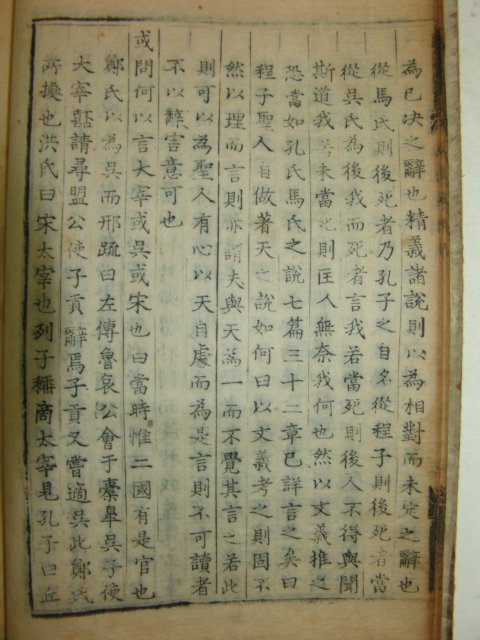 為已決之辭也精義諸說則以為相對而未定之辭也
從馬氏則後死者乃孔子之自名從程子則後死者當
從吳氏為後我而死者言我若當死則後人不得與聞
斯道我若未當死則匡人無奈我何也然以文義推之
恐當如孔氏馬氏之說七篇三十二章已詳言之矣曰
程子聖人自做著天之說如何曰以文義考之則固不
然以理而言則亦謂夫與天為一而不覺其言之若此
則可以為聖人有心以天自處而為是言則不可讀者
不以辭害意可也
或問何以言大宰或吳或宋也曰當時惟二國有是官也
鄭氏以為吳而邢疏曰左傳魯哀公會于橐皋吳子使
大宰嚭請尋盟公使子貢辭焉子貢又嘗適吳此鄭氏
所據也洪氏曰宋太宰也列子稱商太宰見孔子曰丘